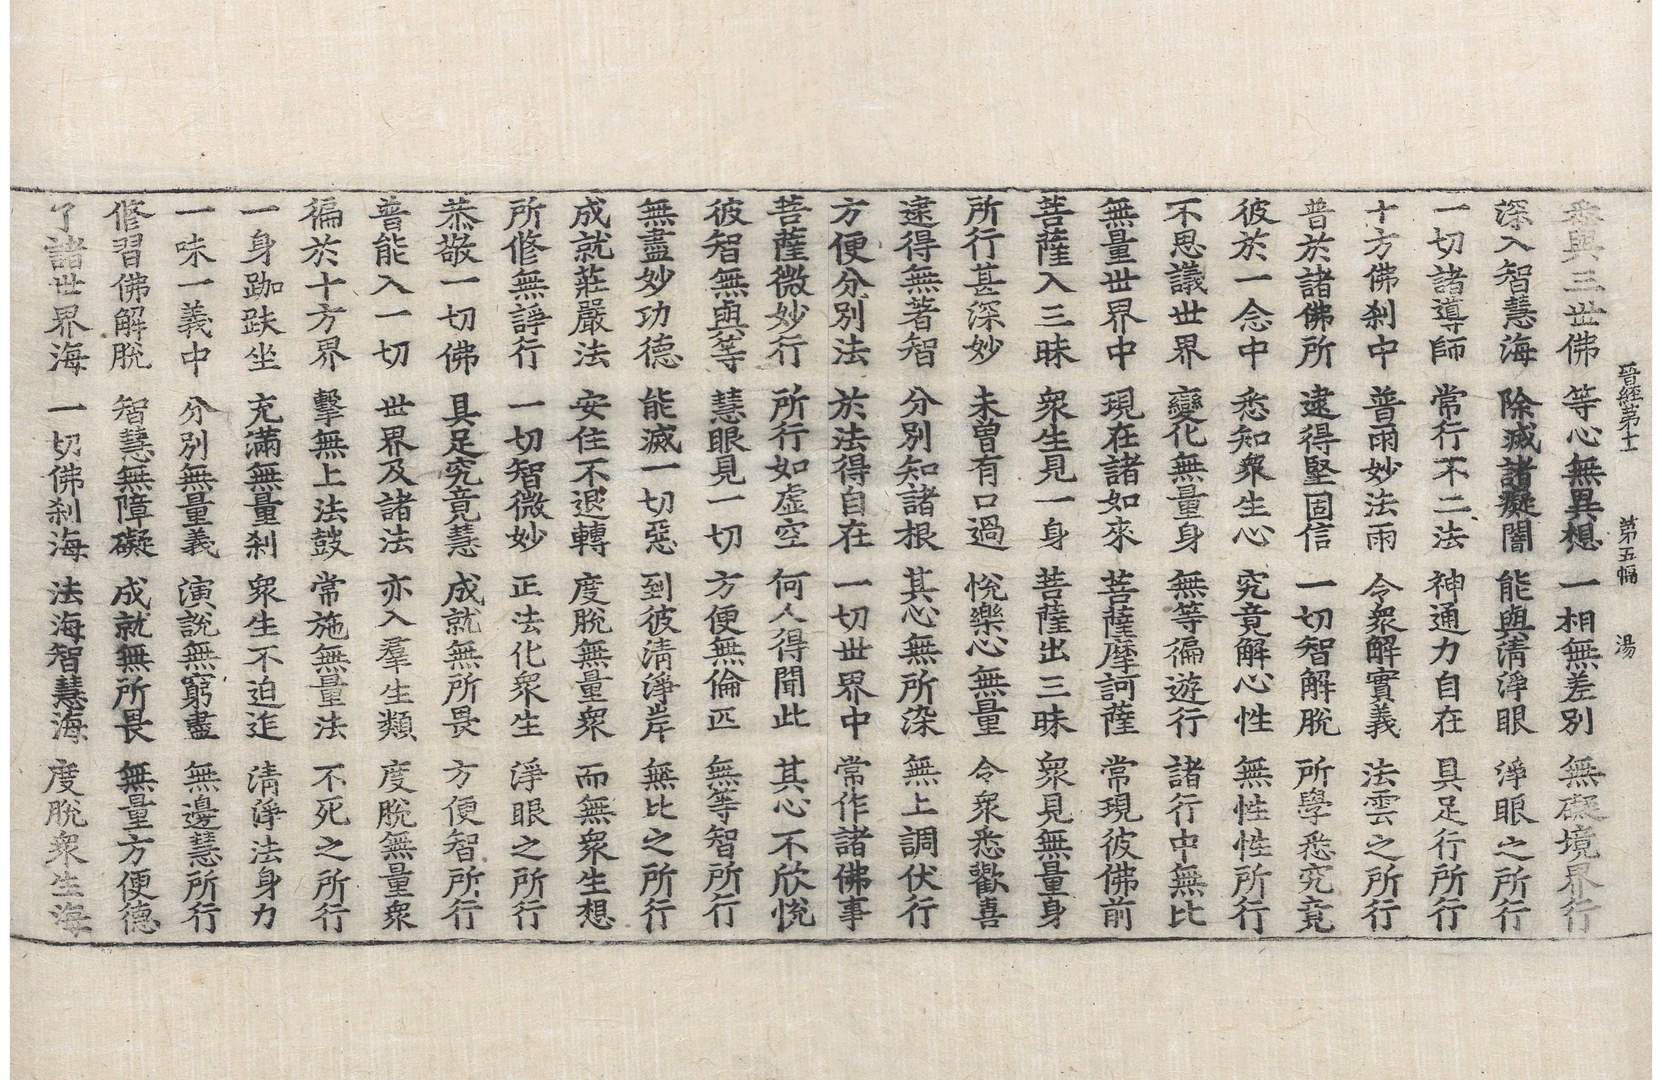 晉經第十二 第五幅 湯
悉與三世佛 等心無異想 一相無差別 無礙境界行
深入智慧海 除滅諸癡闇 能與清淨眼 淨眼之所行
一切諸導師 常行不二法 神通力自在 具足行所行
十方佛刹中 普雨妙法雨 令衆解實義 法雲之所行
普於諸佛所 逮得堅固信 一切智解脫 所學悉究竟
彼於一念中 悉知衆生心 究竟解心性 無性性所行
不思議世界 變化無量身 無等徧遊行 諸行中無比
無量世界中 現在諸如來 菩薩摩訶薩 常現彼佛前
菩薩入三昧 衆生見一身 菩薩出三昧 衆見無量身
所行甚深妙 未曾有口過 悅樂心無量 令衆悉歡喜
逮得無著智 分別知諸根 其心無所染 無上調伏行
方便分別法 於法得自在 一切世界中 常作諸佛事
菩薩微妙行 所行如虛空 何人得聞此 其心不欣悅
彼智無與等 慧眼見一切 方便無倫匹 無等智所行
無盡妙功德 能滅一切惡 到彼清淨岸 無比之所行
成就莊嚴法 安住不退轉 度脫無量衆 而無衆生想
所修無諍行 一切智微妙 正法化衆生 淨眼之所行
恭敬一切佛 具足究竟慧 成就無所畏 方便智所行
普能入一切 世界及諸法 亦入羣生類 度脫無量衆
徧於十方界 擊無上法鼓 常施無量法 不死之所行
一身跏趺坐 充滿無量刹 衆生不迫迮 清淨法身力
一味一義中 分別無量義 演說無窮盡 無邊慧所行
修習佛解脫 智慧無障礙 成就無所畏 無量方便德
了諸世界海 一切佛刹海 法海智慧海 度脫衆生海